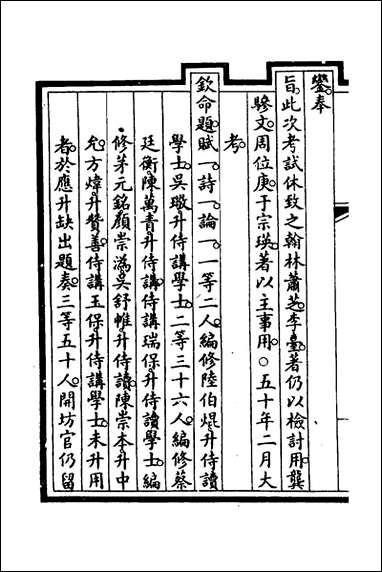 鑒奉
旨此次考試休致之翰林蕭芝李臺著仍以檢討用龔
驂文周位庚于宗瑛著以主事用○五十年二月大
考
欽命題賦一詩一論一一等二人編修陸伯焜升侍讀
學士吳璥升侍講學士二等三十六人編修蔡
廷衡陳萬青升侍講侍講瑞保升侍讀學士編
修茅元銘顏崇溈吳舒帷升侍讀陳崇本升中
允方煒升贊善侍講玉保升侍講學士未升用
者於應升缺出題奏三等五十人開坊官仍留